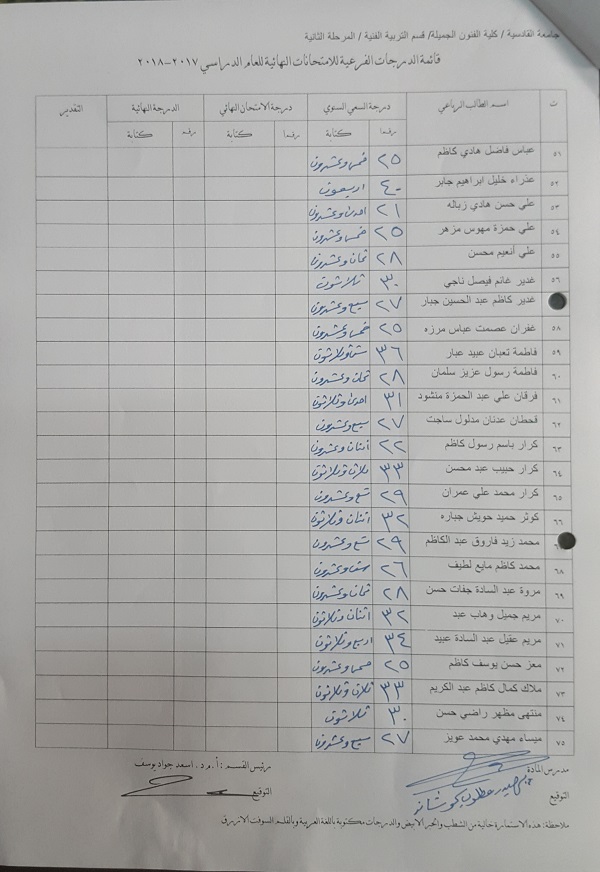 جامعة القادسية / كلية الفنون الجميلة/ قسم التربية الفنية / المرحلة الثانية
قائمة الدرجات الفرعية للامتحانات النهائية للعام الدراسي ٢٠١٧-٢٠١٨
ت اسم الطالب الرباعي درجة السعي السنوي درجة الامتحان النهائي الدرجة النهائية التقدير
رقما كتابة رقما كتابة رقما كتابة
٥١ عباس فاضل هادي كاظم ٢٥ خمس وعشرون
٥٢ عذراء خليل ابراهيم جابر ٤٠ اربعون
٥٣ علي حسن هادي زباله ٢١ احدى وعشرون
٥٤ علي حمزة مهوس مزهر ٢٥ خمس وعشرون
٥٥ علي أنعيم محسن ٢٨ ثمان وعشرون
٥٦ غدير غانم فيصل ناجي ٣٠ ثلاثون
غدير كاظم عبد الحسين جبار ٢٧ سبع وعشرون
٥٨ غفران عصمت عباس مرزه ٢٥ خمس وعشرون
٥٩ فاطمة تعبان عبيد عبار ٣٦ ست وثلاثون
٦٠ فاطمة رسول عزيز سلمان ٢٨ ثمان وعشرون
٦١ فرقان علي عبد الحمزة منشود ٣١ احدى وثلاثون
٦٢ قحطان عدنان مدلول ساجت ٢٧ سبع وعشرون
٦٣ كرار باسم رسول كاظم ٢٢ اثنان وعشرون
٦٤ كرار حبيب عبد محسن ٣٣ ثلاث وثلاثون
٦٥ كرار محمد علي عمران ٢٩ تسع وعشرون
٦٦ كوثر حميد حويش جباره ٣٢ اثنان وثلاثون
محمد زيد فاروق عبد الكاظم ٢٩ تسع وعشرون
٦٨ محمد كاظم مايع لطيف ٢٦ ست وعشرون
٦٩ مروة عبد السادة جفات حسن ٢٨ ثمان وعشرون
٧٠ مريم جميل وهاب عبد ٣٢ اثنان وثلاثون
٧١ مريم عقيل عبد السادة عبيد ٣٤ اربع وثلاثون
٧٢ معز حسن يوسف كاظم ٢٥ خمس وعشرون
٧٣ ملاك كمال كاظم عبد الكريم ٣٣ ثلاث وثلاثون
٧٤ منتهى مظهر راضي حسن ٣٠ ثلاثون
٧٥ ميساء مهدي محمد عويز ٢٧ سبع وعشرون
مدرس المادة رئيس القسم : أ.م.د. اسعد جواد يوسف
التوقيع التوقيع
ملاحظة: هذه الاستمارة خالية من الشطب والحبر الابيض والدرجات مكتوبة باللغة العربية وبالقلم السوفت الازرق